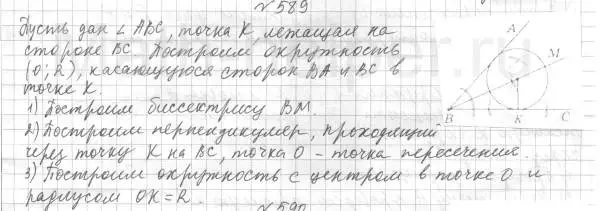 №589
Пусть дан ∠ABC, точка K, лежащая на
стороне BC. Построим окружность
(O; R), касающуюся сторон BA и BC в
точке K.
1) Построим биссектрису BM.
2) Построим перпендикуляр, проходящий
через точку K на BC, точка O – точка пересечения.
3) Построим окружность с центром в точке O и
радиусом OK=R.
№590
A
M
O
B
K
C